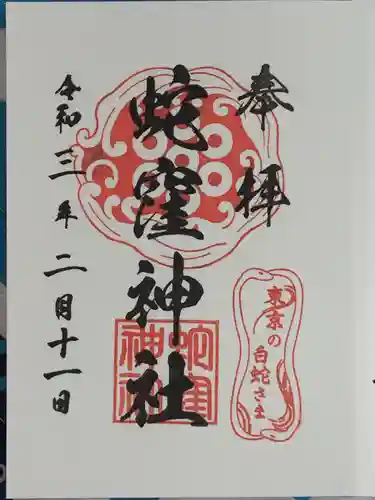 奉拝
蛇窪神社
令和三年二月十一日
蛇窪
神社
東京の
白蛇さま